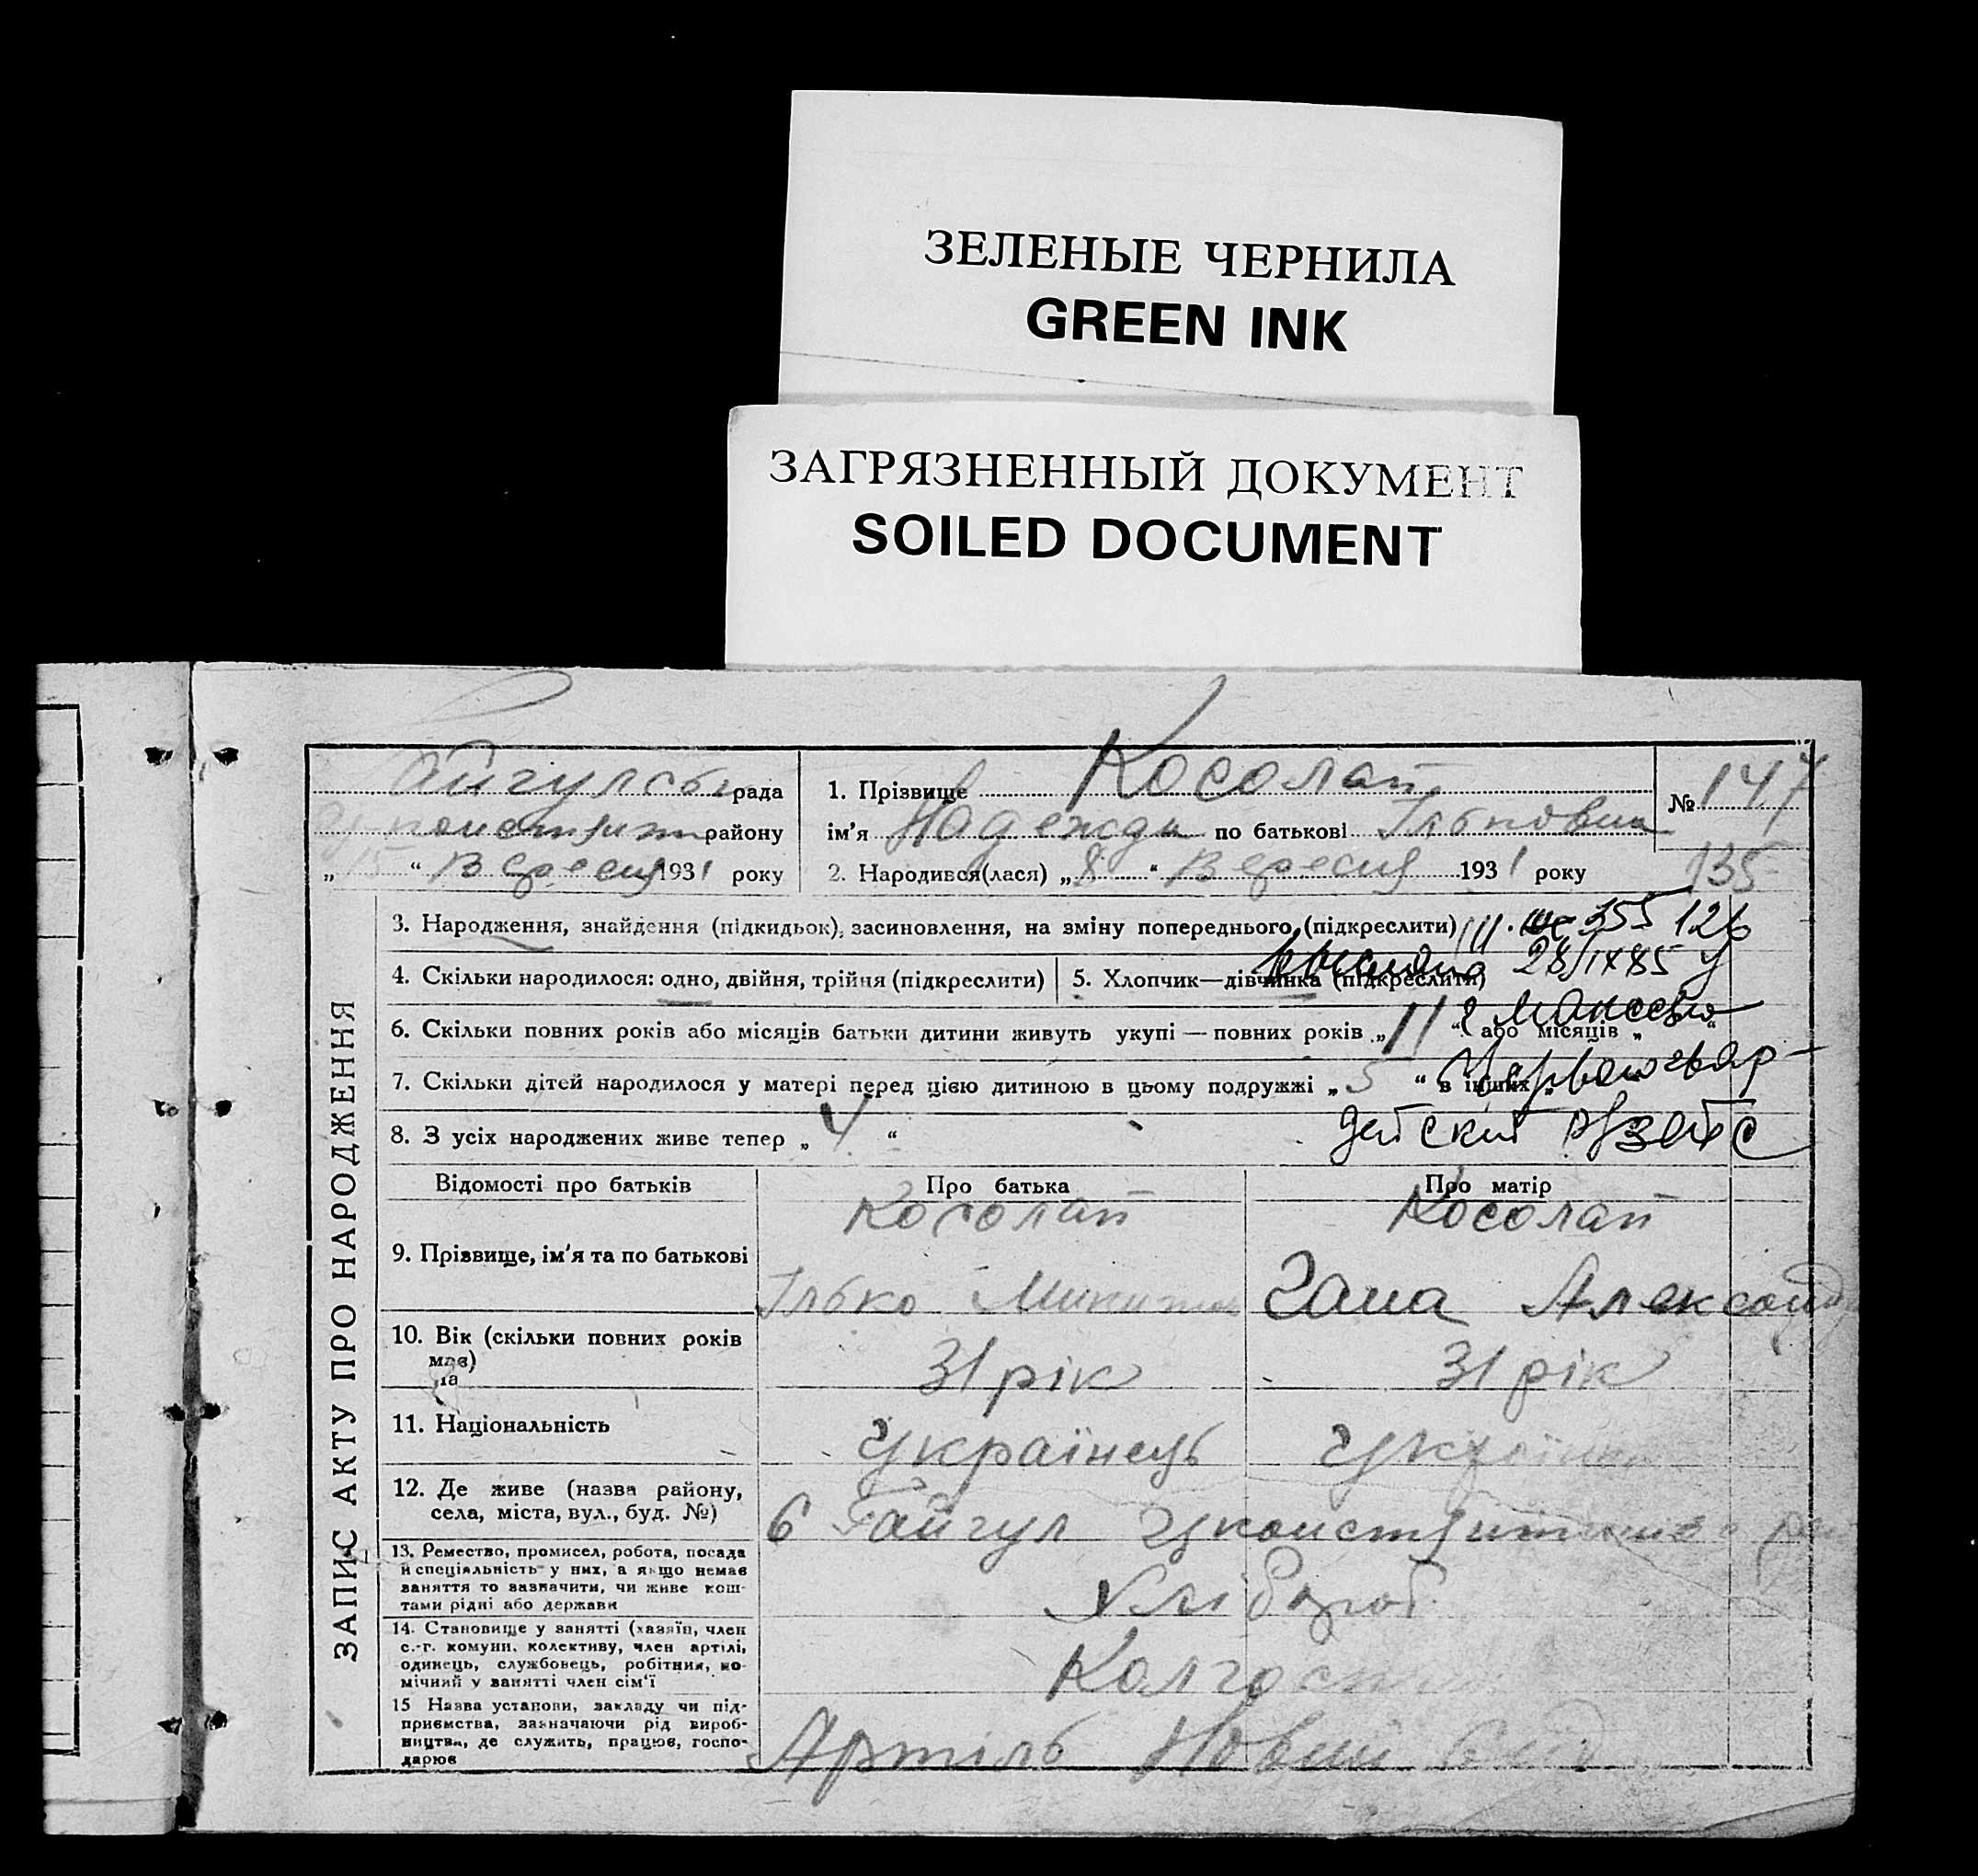 ЗЕЛЕНЫЕ ЧЕРНИЛА
GREEN INK
ЗАГРЯЗНЕННЫЙ ДОКУМЕНТ
SOILED DOCUMENT
ЗАПИС АКТУ ПРО НАРОДЖЕННЯ
рада
району
„15“ Вересня 1931 року
1. Прізвище Косолап
ім'я Надежда по батькові Ільковна
№ 147
2. Народився(лася) „8“ Вересня 1931 року
135
3. Народження, знайдення (підкидьок), засиновлення, на зміну попереднього (підкреслити)
III 355126
4. Скільки народилося: одно, двійня, трійня (підкреслити)
5. Хлопчик—дівчинка (підкреслити)
28/IX 85
6. Скільки повних років або місяців батьки дитини живуть укупі — повних років „11“ або місяців „ “
7. Скільки дітей народилося у матері перед цією дитиною в цьому подружжі „5“ в інших „
Червоногвар-
дейский
8. З усіх народжених живе тепер „4“
Відомості про батьків
Про батька
Про матір
9. Прізвище, ім'я та по батькові
Косолап
Ілько
Косолап
Гана Александ
10. Вік (скільки повних років має)
31 рік
31 рік
11. Національність
Українець
Українка
12. Де живе (назва району, села, міста, вул., буд. №)
Гайгул
13. Ремество, промисел, робота, посада й спеціяльність у них, а якщо немає заняття то зазначити, чи живе коштами рідні або держави
Хлібороб
14. Становище у занятті (хазяїн, член с.-г. комуни, колективу, член артілі, одинець, службовець, робітник, помічний у занятті член сім'ї
15 Назва установи, закладу чи підприємства, зазначаючи рід виробництва, де служить, працює, господарює
Артіль Новий